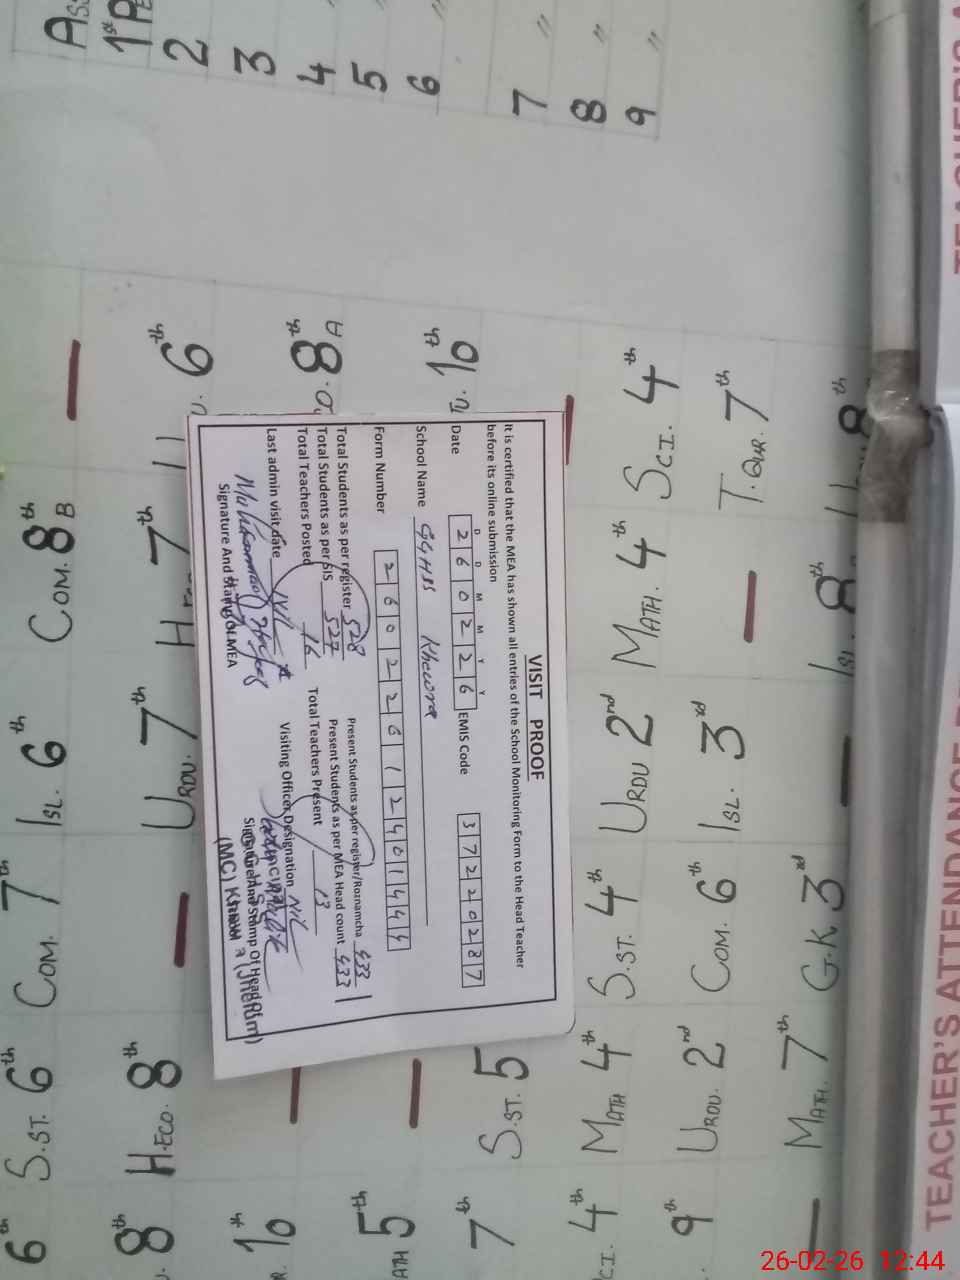 VISIT PROOF
It is certified that the MEA has shown all entries of the School Monitoring Form to the Head Teacher
before its online submission
D D M M Y Y
Date 2 6 0 2 2 6 EMIS Code 3 7 2 2 0 2 8 7
School Name GGHSS Khewra
Form Number 2 6 0 2 2 6 1 2 4 0 1 4 4 4
Total Students as per register 528 Present Students as per register/Roznamcha 433
Total Students as per SIS 527 Present Students as per MEA Head count 433
Total Teachers Posted 16 Total Teachers Present 13
Last admin visit date Nil Visiting Officer Designation Nil
Signature And Stamp Of MEA Signature And Stamp Of Head
(MC)
1st
2 "
3 "
4 "
5 "
6 "
7 "
8 "
9 "
6th S.ST. 6th COM. 7th ISL. 6th COM. 8th B
8th H.ECO. 8th — URDU. 7th 7th 6th
10th — 8th A
5th — 10th
7th S.ST. 5th
SCI. 4th MATH 4th S.ST. 4th URDU 2nd MATH. 4th SCI. 4th
9th URDU. 2nd COM. 6th ISL. 3rd — T.QUR. 7th
— MATH. 7th G.K 3rd — ISL. 8th 8th
TEACHER'S ATTENDANCE
TEACHER'S
26-02-26 12:44